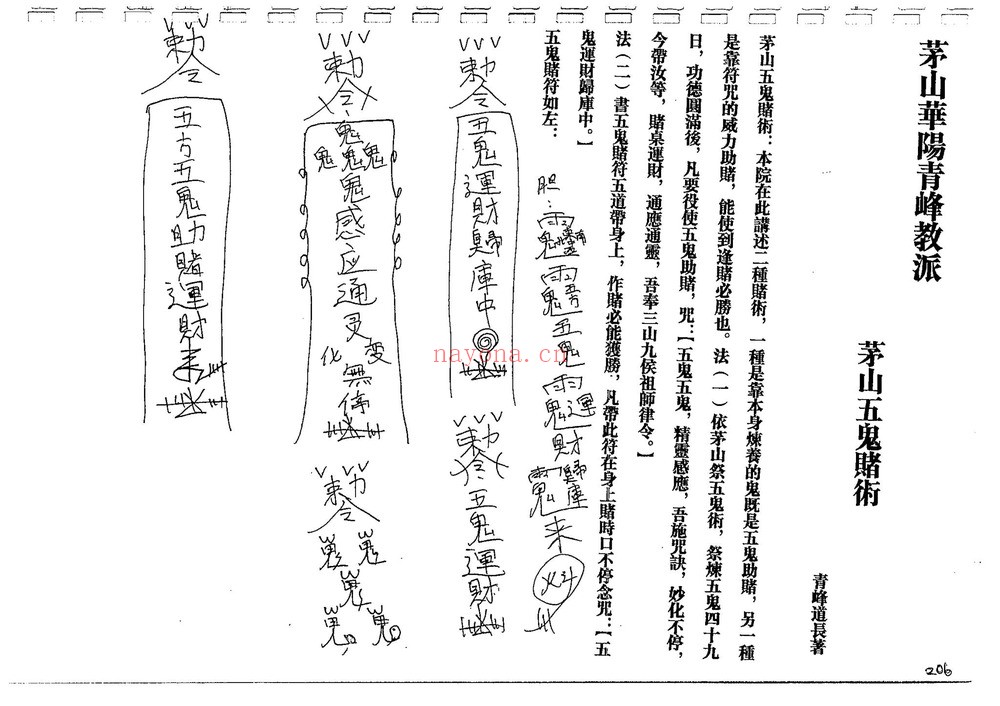 茅山華陽青峰教派
茅山五鬼賭術
青峰道長著
茅山五鬼賭術：本院在此講述二種賭術，一種是靠本身煉養的鬼既是五鬼助賭，另一種
是靠符咒的威力助賭，能使到逢賭必勝也。法（一）依茅山祭五鬼術，祭煉五鬼四十九
日，功德圓滿後，凡要役使五鬼助賭，咒：【五鬼五鬼，精靈感應，吾施咒訣，妙化不停，
今帶汝等，賭桌運財，通應通靈，吾奉三山九侯祖師律令。】
法（二）書五鬼賭符五道帶身上，作賭必能獲勝，凡帶此符在身上賭時口不停念咒：【五
鬼運財歸庫中。】
五鬼賭符如左：
胆：
五鬼
運財歸庫
來
勅令五鬼運財歸庫中
勅令五鬼運財
勅令鬼鬼鬼鬼鬼感应通灵变化無停
勅令
勅令五方五鬼助賭運財
206
nayona.cn